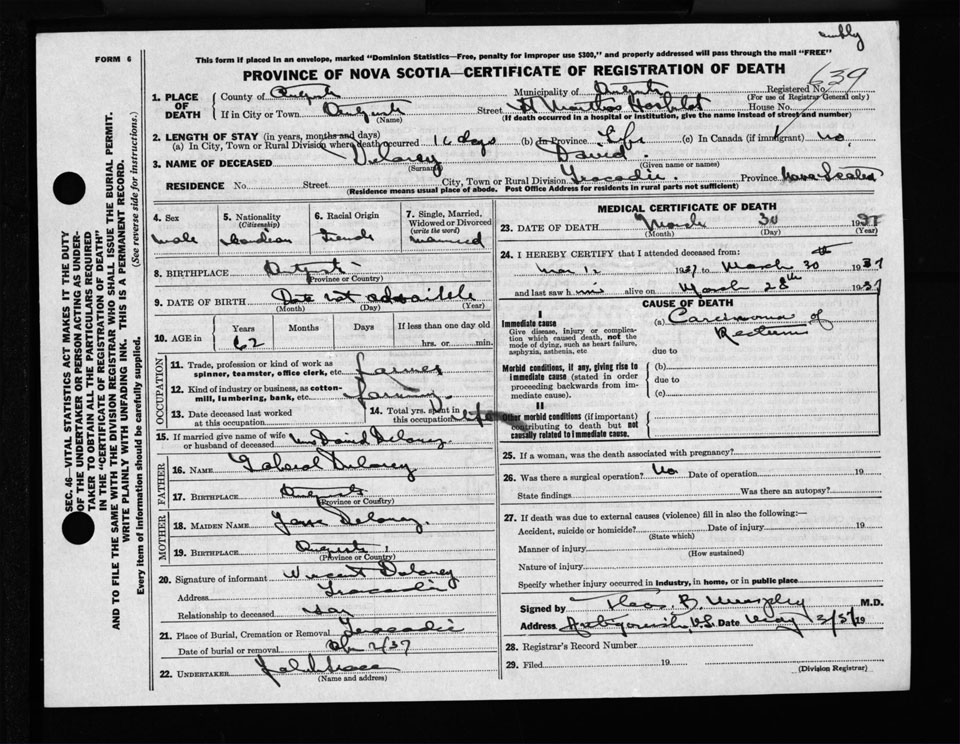 FORM 6
This form if placed in an envelope, marked "Dominion Statistics—Free, penalty for improper use $300," and properly addressed will pass through the mail "FREE"
PROVINCE OF NOVA SCOTIA—CERTIFICATE OF REGISTRATION OF DEATH
639
SEC. 46—VITAL STATISTICS ACT MAKES IT THE DUTY
OF THE UNDERTAKER OR PERSON ACTING AS UNDER-
TAKER TO OBTAIN ALL THE PARTICULARS REQUIRED
IN THE "CERTIFICATE OF REGISTRATION OF DEATH"
AND TO FILE THE SAME WITH THE DIVISION REGISTRAR WHO SHALL ISSUE THE BURIAL PERMIT.
WRITE PLAINLY WITH UNFADING INK. THIS IS A PERMANENT RECORD.
Every item of information should be carefully supplied. (See reverse side for instructions.)
1. PLACE OF DEATH
County of Municipality of Registered No.
(For use of Registrar General only)
If in City or Town Street St Marthas Hospital House No.
(Name) (If death occurred in a hospital or institution, give the name instead of street and number)
2. LENGTH OF STAY (in years, months and days)
(a) In City, Town or Rural Division where death occurred days (b) In Province Life (c) In Canada (if immigrant) no.
3. NAME OF DECEASED Delorey David
(Surname) (Given name or names)
RESIDENCE No. Street City, Town or Rural Division Tracadie Province Nova Scotia
(Residence means usual place of abode. Post Office Address for residents in rural parts not sufficient)
4. Sex male
5. Nationality (Citizenship) Canadian
6. Racial Origin French
7. Single, Married, Widowed or Divorced (write the word) married
8. BIRTHPLACE
(Province or Country)
9. DATE OF BIRTH Date not
(Month) (Day) (Year)
10. AGE in Years Months Days If less than one day old
62 hrs. or min.
OCCUPATION
11. Trade, profession or kind of work as spinner, teamster, office clerk, etc. farmer
12. Kind of industry or business, as cotton-mill, lumbering, bank, etc. farming
13. Date deceased last worked at this occupation
14. Total yrs. spent in this occupation life
15. If married give name of wife or husband of deceased Mrs David Delorey.
FATHER
16. NAME Delorey
17. BIRTHPLACE
(Province or Country)
MOTHER
18. MAIDEN NAME Jane Delorey.
19. BIRTHPLACE
(Province or Country)
20. Signature of informant Vincent Delorey
Address Tracadie
Relationship to deceased son
21. Place of Burial, Cremation or Removal Tracadie
Date of burial or removal Apr 2/37
22. UNDERTAKER
(Name and address)
MEDICAL CERTIFICATE OF DEATH
23. DATE OF DEATH March 30 1937
(Month) (Day) (Year)
24. I HEREBY CERTIFY that I attended deceased from:
Mar 12 1937 to March 30th 1937
and last saw him alive on March 28th 1937
CAUSE OF DEATH
I
Immediate cause
Give disease, injury or complication which caused death, not the mode of dying, such as heart failure, asphyxia, asthenia, etc
(a) Carcinoma of
Rectum
due to
Morbid conditions, if any, giving rise to immediate cause (stated in order proceeding backwards from immediate cause).
(b)
due to
(c)
II
Other morbid conditions (if important) contributing to death but not causally related to immediate cause.
25. If a woman, was the death associated with pregnancy?
26. Was there a surgical operation? No Date of operation 19
State findings Was there an autopsy?
27. If death was due to external causes (violence) fill in also the following:—
Accident, suicide or homicide? Date of injury 19
(State which)
Manner of injury
(How sustained)
Nature of injury
Specify whether injury occurred in industry, in home, or in public place
Signed by Thos B. Murphy M.D.
Address Antigonish, N.S. Date May 3/37 19
28. Registrar's Record Number
29. Filed 19
(Division Registrar)